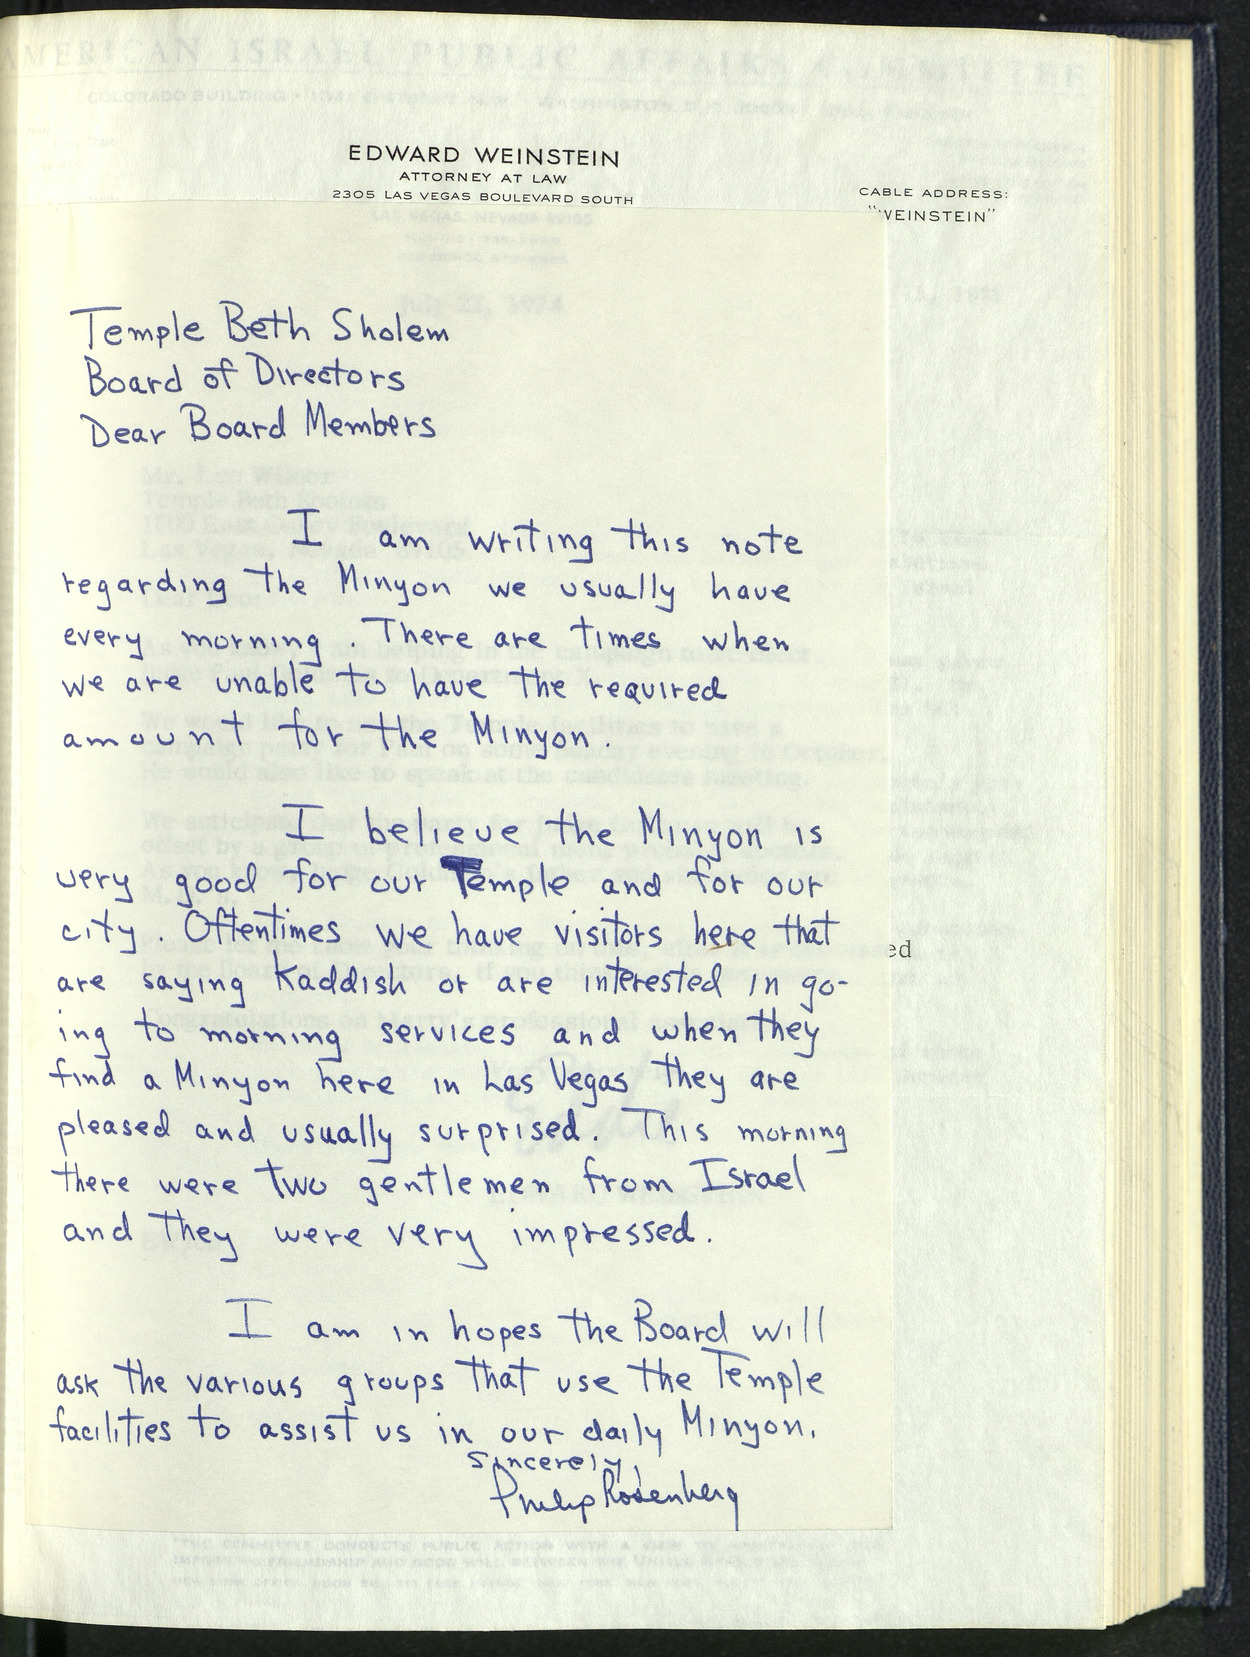 AMERICAN ISRAEL PUBLIC AFFAIRS COMMITTEE
EDWARD WEINSTEIN
ATTORNEY AT LAW
2305 LAS VEGAS BOULEVARD SOUTH
CABLE ADDRESS:
"WEINSTEIN"
LAS VEGAS, NEVADA 89105
July 22, 1974
Temple Beth Sholem
Board of Directors
Dear Board Members
I am writing this note
regarding the Minyon we usually have
every morning. There are times when
we are unable to have the required
amount for the Minyon.
I believe the Minyon is
very good for our Temple and for our
city. Oftentimes we have visitors here that
ed
are saying Kaddish or are interested in go-
ing to morning services and when they
find a Minyon here in Las Vegas they are
pleased and usually surprised. This morning
there were two gentlemen from Israel
and they were very impressed.
I am in hopes the Board will
ask the various groups that use the Temple
facilities to assist us in our daily Minyon.
Sincerely,
Philip Rosenberg